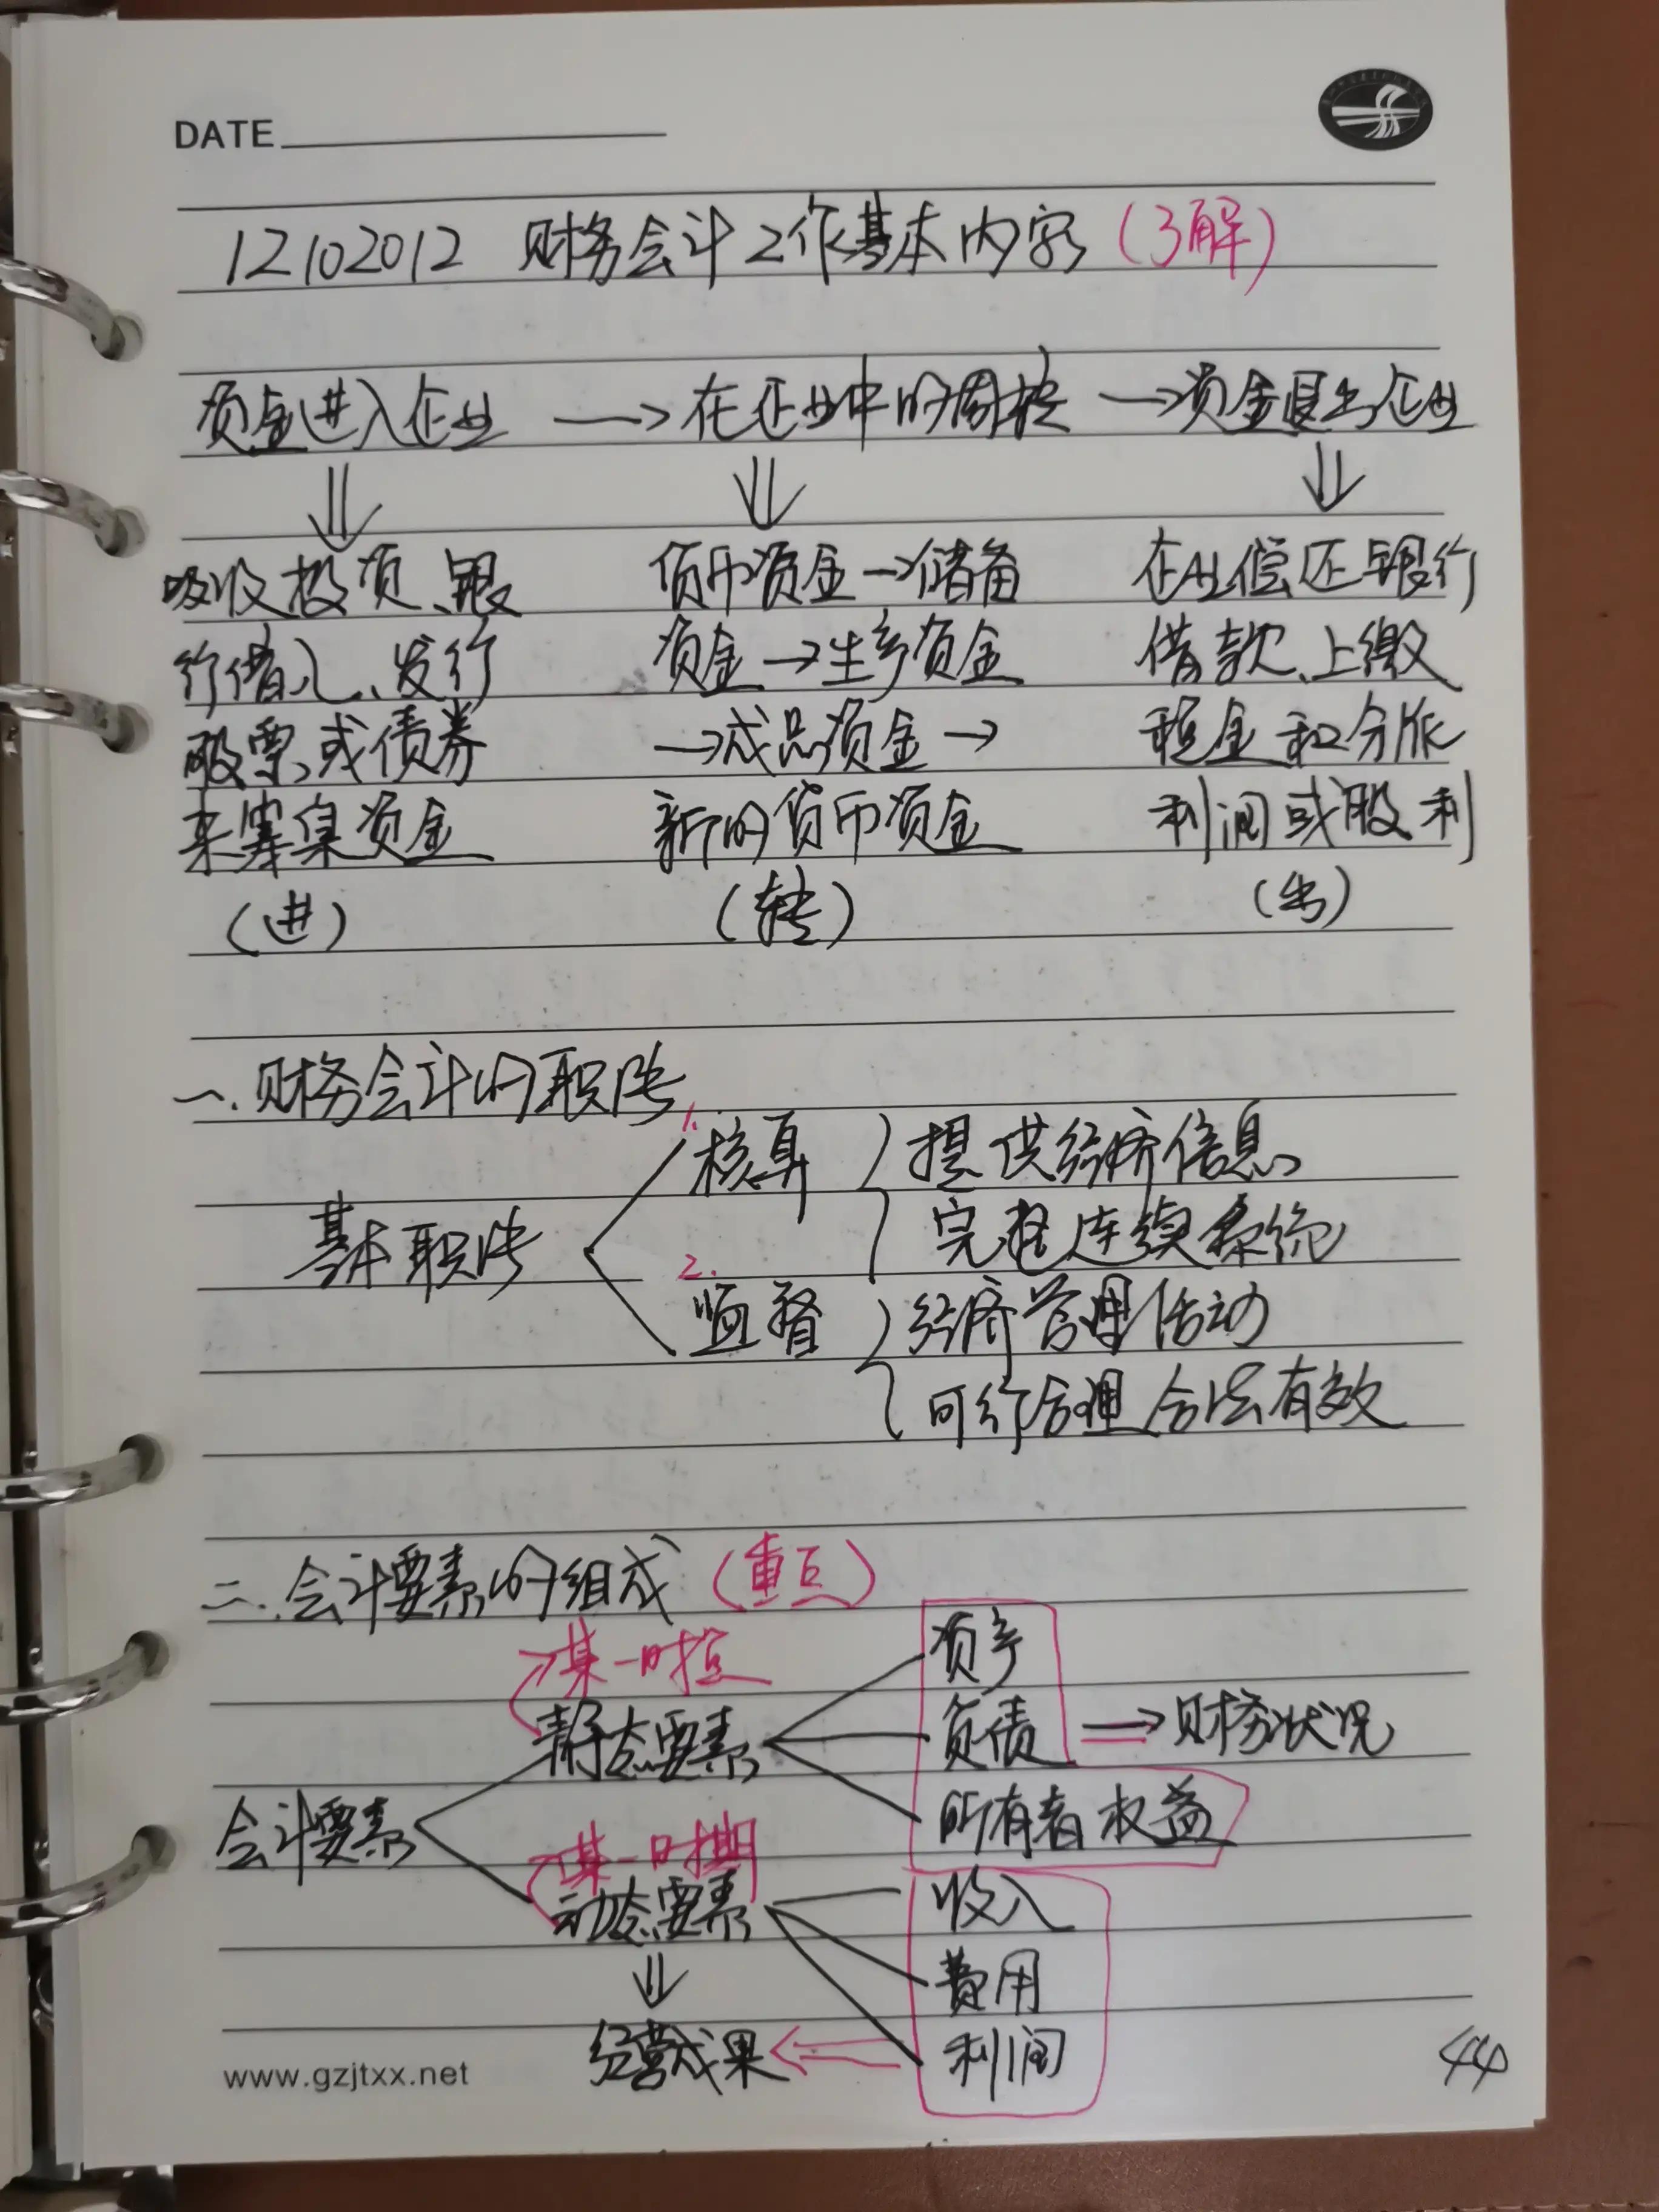 DATE
1Z102012 财务会计工作基本内容(了解)
资金进入企业 → 在企业中的周转 → 资金退出企业
吸收投资、银
行借入、发行
股票或债券
来筹集资金
(进)
货币资金→储备
资金→生产资金
→成品资金→
新的货币资金
(转)
企业偿还银行
借款、上缴
税金和分派
利润或股利
(出)
一.财务会计的职能
基本职能
1.核算
提供经济信息
完整连续系统
2.监督
经济管理活动
可行合理合法有效
二.会计要素的组成(重点)
会计要素
→某一时点
静态要素
资产
负债 ⇒财务状况
所有者权益
→某一时期
动态要素
收入
费用
利润
经营成果
www.gzjtxx.net
44